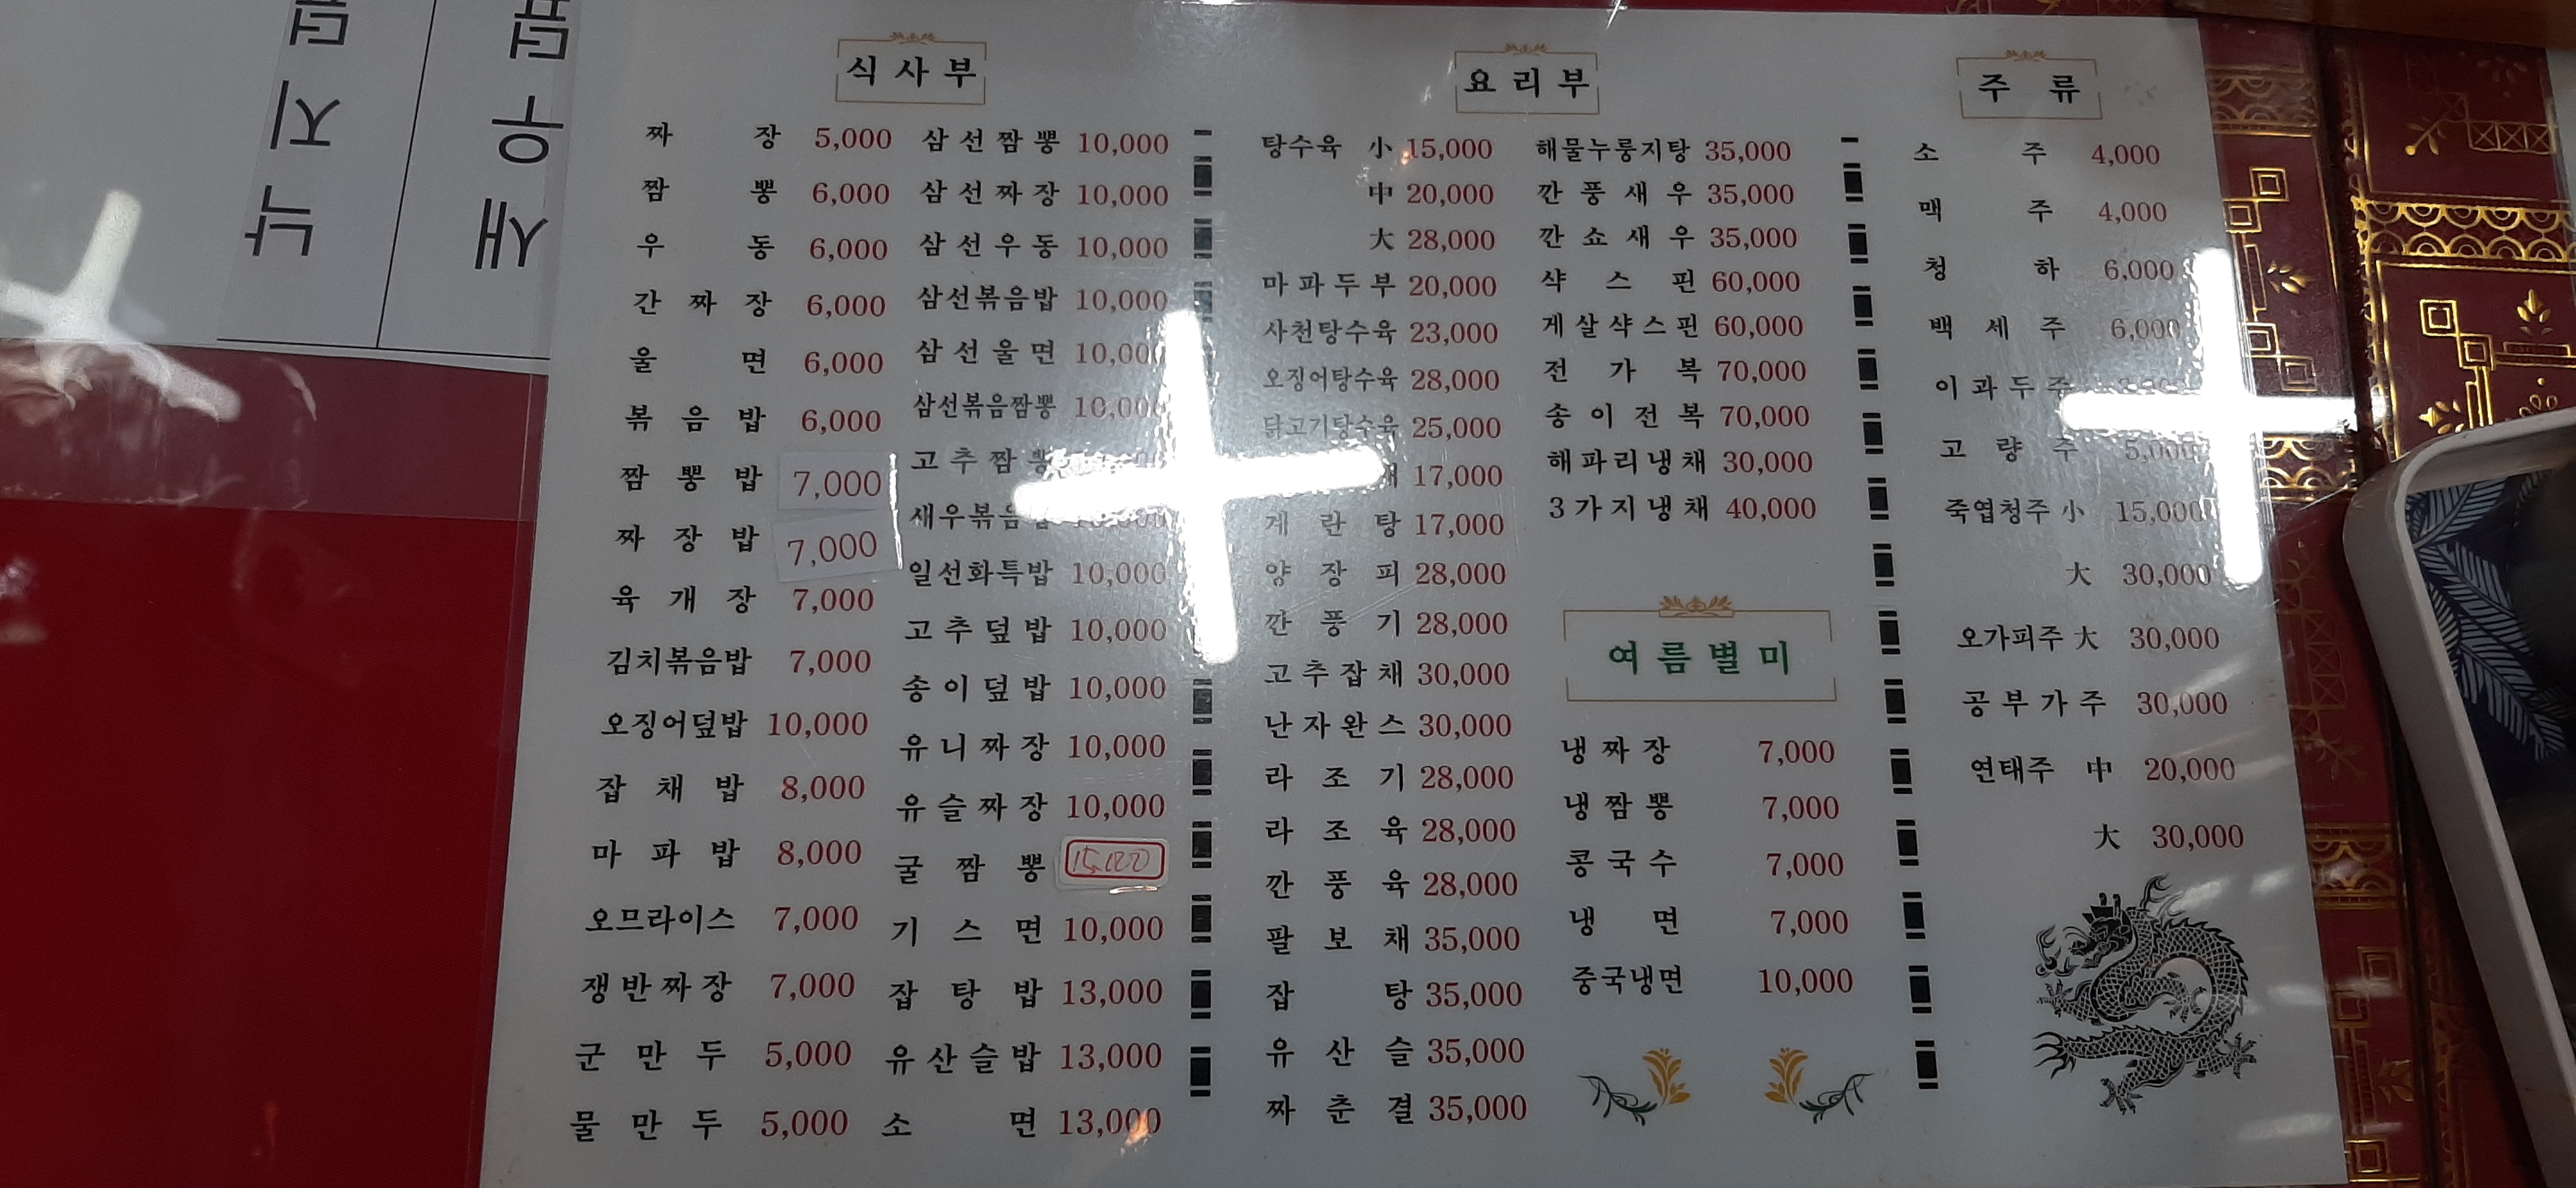 낙지덮
새우덮
식사부
짜장 5,000
짬뽕 6,000
우동 6,000
간짜장 6,000
울면 6,000
볶음밥 6,000
짬뽕밥 7,000
짜장밥 7,000
육개장 7,000
김치볶음밥 7,000
오징어덮밥 10,000
잡채밥 8,000
마파밥 8,000
오므라이스 7,000
쟁반짜장 7,000
군만두 5,000
물만두 5,000
삼선짬뽕 10,000
삼선짜장 10,000
삼선우동 10,000
삼선볶음밥 10,000
삼선울면 10,000
삼선볶음짬뽕 10,000
고추짬뽕
새우볶음밥 10,000
일선화특밥 10,000
고추덮밥 10,000
송이덮밥 10,000
유니짜장 10,000
유슬짜장 10,000
굴짬뽕 15,000
기스면 10,000
잡탕밥 13,000
유산슬밥 13,000
소면 13,000
요리부
탕수육 小 15,000
中 20,000
大 28,000
마파두부 20,000
사천탕수육 23,000
오징어탕수육 28,000
닭고기탕수육 25,000
17,000
계란탕 17,000
양장피 28,000
깐풍기 28,000
고추잡채 30,000
난자완스 30,000
라조기 28,000
라조육 28,000
깐풍육 28,000
팔보채 35,000
잡탕 35,000
유산슬 35,000
짜춘결 35,000
해물누룽지탕 35,000
깐풍새우 35,000
깐쇼새우 35,000
샥스핀 60,000
게살샥스핀 60,000
전가복 70,000
송이전복 70,000
해파리냉채 30,000
3가지냉채 40,000
여름별미
냉짜장 7,000
냉짬뽕 7,000
콩국수 7,000
냉면 7,000
중국냉면 10,000
주류
소주 4,000
맥주 4,000
청하 6,000
백세주 6,000
이과두주
고량주 5,000
죽엽청주 小 15,000
大 30,000
오가피주 大 30,000
공부가주 30,000
연태주 中 20,000
大 30,000